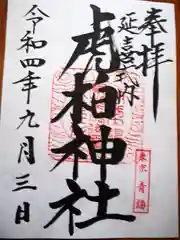 奉拝
延喜式内
虎柏神社
東京 青梅
令和四年九月三日